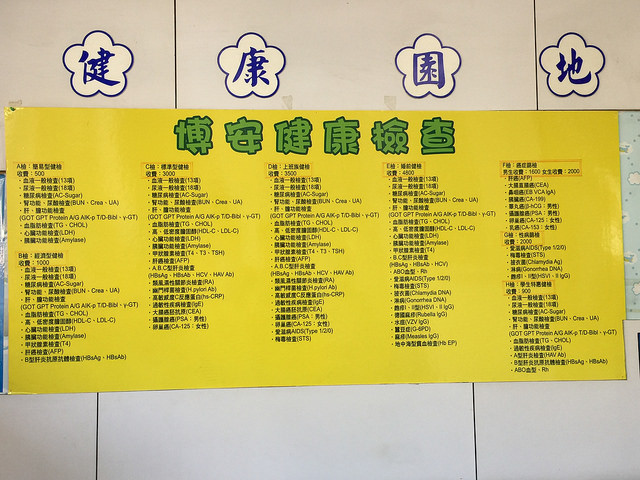 健康園地
博安健康檢查
A檢：簡易型健檢
收費：500
・血液一般檢查(13項)
・尿液一般檢查(18項)
・糖尿病檢查(AC-Sugar)
・腎功能、尿酸檢查(BUN、Crea、UA)
・肝、膽功能檢查
(GOT GPT Protein A/G AlK-p T/D-Bibl、γ-GT)
・血脂肪檢查(TG、CHOL)
・心臟功能檢查(LDH)
・胰臟功能檢查(Amylase)
B檢：經濟型健檢
收費：1000
・血液一般檢查(13項)
・尿液一般檢查(18項)
・糖尿病檢查(AC-Sugar)
・腎功能、尿酸檢查(BUN、Crea、UA)
・肝、膽功能檢查
(GOT GPT Protein A/G AlK-p T/D-Bibl、γ-GT)
・血脂肪檢查(TG、CHOL)
・高、低密度膽固醇(HDL-C、LDL-C)
・心臟功能檢查(LDH)
・胰臟功能檢查(Amylase)
・甲狀腺素檢查(T4)
・肝癌檢查(AFP)
・B型肝炎抗原抗體檢查(HBsAg、HBsAb)
C檢：標準型健檢
收費：3000
・血液一般檢查(13項)
・尿液一般檢查(18項)
・糖尿病檢查(AC-Sugar)
・腎功能、尿酸檢查(BUN、Crea、UA)
・肝、膽功能檢查
(GOT GPT Protein A/G AlK-p T/D-Bibl、γ-GT)
・血脂肪檢查(TG、CHOL)
・高、低密度膽固醇(HDL-C、LDL-C)
・心臟功能檢查(LDH)
・胰臟功能檢查(Amylase)
・甲狀腺素檢查(T4、T3、TSH)
・肝癌檢查(AFP)
・A.B.C型肝炎檢查
(HBsAg、HBsAb、HCV、HAV Ab)
・類風濕性關節炎檢查(RA)
・幽門桿菌檢查(H.pylori Ab)
・高敏感度C反應蛋白(hs-CRP)
・過敏性疾病檢查(IgE)
・大腸癌胚抗原(CEA)
・攝護腺癌(PSA：男性)
・卵巢癌(CA-125：女性)
D檢：上班族健檢
收費：3500
・血液一般檢查(13項)
・尿液一般檢查(18項)
・糖尿病檢查(AC-Sugar)
・腎功能、尿酸檢查(BUN、Crea、UA)
・肝、膽功能檢查
(GOT GPT Protein A/G AlK-p T/D-Bibl、γ-GT)
・血脂肪檢查(TG、CHOL)
・高、低密度膽固醇(HDL-C、LDL-C)
・心臟功能檢查(LDH)
・胰臟功能檢查(Amylase)
・甲狀腺素檢查(T4、T3、TSH)
・肝癌檢查(AFP)
・A.B.C型肝炎檢查
(HBsAg、HBsAb、HCV、HAV Ab)
・類風濕性關節炎檢查(RA)
・幽門桿菌檢查(H.pylori Ab)
・高敏感度C反應蛋白(hs-CRP)
・過敏性疾病檢查(IgE)
・大腸癌胚抗原(CEA)
・攝護腺癌(PSA：男性)
・卵巢癌(CA-125：女性)
・愛滋病AIDS(Type 1/2/0)
・梅毒檢查(STS)
E檢：婚前健檢
收費：4600
・血液一般檢查(13項)
・尿液一般檢查(18項)
・糖尿病檢查(AC-Sugar)
・腎功能、尿酸檢查(BUN、Crea、UA)
・肝、膽功能檢查
(GOT GPT Protein A/G AlK-p T/D-Bibl、γ-GT)
・血脂肪檢查(TG、CHOL)
・心臟功能檢查(LDH)
・胰臟功能檢查(Amylase)
・甲狀腺素檢查(T4)
・B.C型肝炎檢查
(HBsAg、HBsAb、HCV)
・ABO血型、Rh
・愛滋病AIDS(Type 1/2/0)
・梅毒檢查(STS)
・披衣菌(Chlamydia DNA)
・淋病(Gonorrhea DNA)
・皰疹I、II型(HSVI、II IgG)
・德國麻疹(Rubella IgG)
・水痘(VZV IgG)
・蠶豆症(G-6PD)
・麻疹(Measles IgG)
・地中海型貧血檢查(Hb EP)
F檢：癌症篩檢
男生收費：1600 女生收費：2000
・肝癌(AFP)
・大腸直腸癌(CEA)
・鼻咽癌(EB VCA IgA)
・胰臟癌(CA-199)
・睪丸癌(β-hCG：男性)
・攝護腺癌(PSA：男性)
・卵巢癌(CA-125：女性)
・乳癌(CA-153：女性)
G檢：性病篩檢
收費：2000
・愛滋病AIDS(Type 1/2/0)
・梅毒檢查(STS)
・披衣菌(Chlamydia Ag)
・淋病(Gonorrhea DNA)
・皰疹I、II型(HSVI、II IgG)
H檢：學生特惠健檢
收費：900
・血液一般檢查(13項)
・尿液一般檢查(18項)
・糖尿病檢查(AC-Sugar)
・腎功能、尿酸檢查(BUN、Crea、UA)
・肝、膽功能檢查
(GOT GPT Protein A/G AlK-p T/D-Bibl、γ-GT)
・血脂肪檢查(TG、CHOL)
・過敏性疾病檢查(IgE)
・A型肝炎檢查(HAV Ab)
・B型肝炎抗原抗體檢查(HBsAg、HBsAb)
・ABO血型、Rh